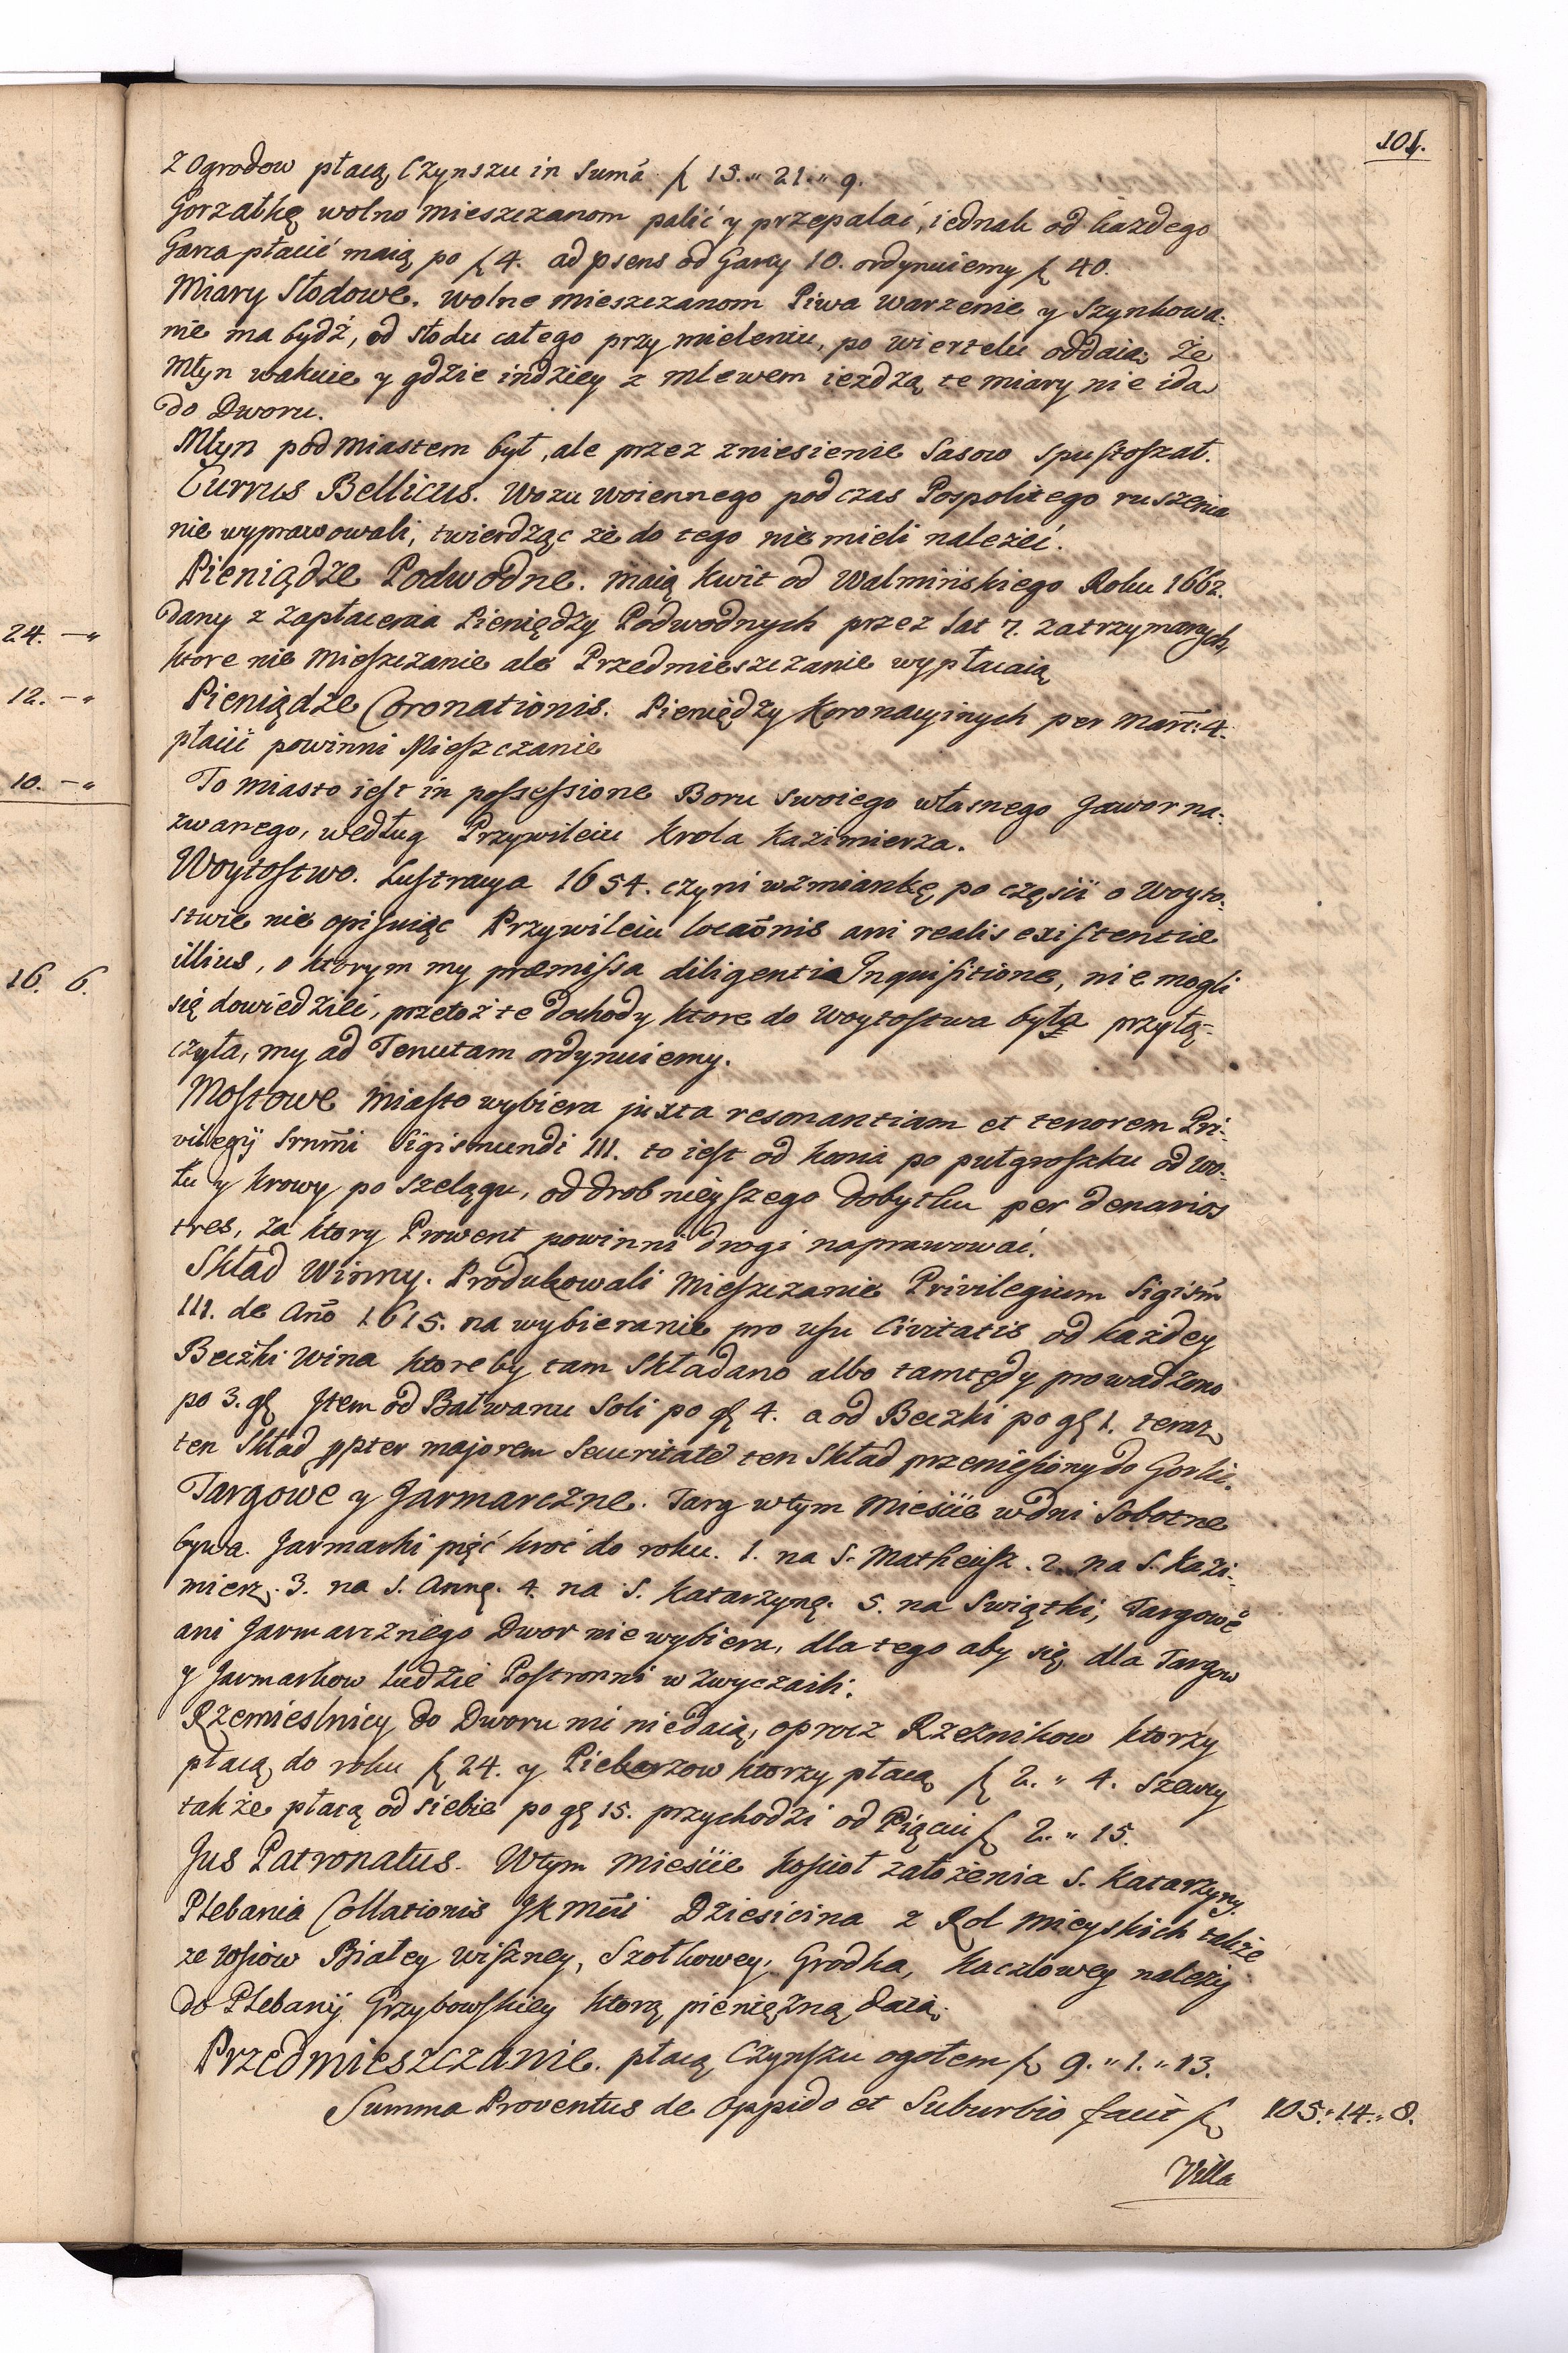 101.
z Ogrodow płacą Czynszu in Sumâ f 15.„ 21.„ 9.
Gorzałkę wolno mieszczanom palić y przepalać, iednak od każdego
Garca płacić maią po f 4. ad psens od Garcy 10. ordynuiemy f 40.
Miary Słodowe. wolne mieszczanom Piwa warzenie y Szynkowa:
nie ma bydź, od słodu całego przy mieleniu, po wiertelu oddaią, że
Młyn wakuie y gdzie indziey z mlewem ieżdżą te miary nie ida
do Dworu.
Młyn pod miastem był, ale przez zniesienie Sasow spustoszał.
Currus Bellicus. Wozu woiennego podczas Pospolitego ruszenia
nie wyprawowali, twierdząc że do tego nie mieli należeć.
Pieniądze Podwodne. maią kwit od Walmińskiego Roku 1662.
dany z zapłacenia Pieniędzy Podwodnych przez lat 7. zatrzymanych,
ktore nie Mieszczanie ale Przedmieszczanie wypłacaią
Pieniądze Coronationis. Pieniędzy Koronacyinych per Mar̃c: 4.
płacić powinni Mieszczanie
To miasto iest in possessione Boru swoiego własnego Jawor na:
zwanego, według Przywileiu Krola Kazimierza.
Woytostwo. Lustracya 1654. czyni wzmiankę po części o Woyto:
stwie nie opisuiąc Przywileiu locaõnis ani realis existentie
illius, o ktorym my præmissa diligentia Inquisitione, nie mogli
się dowiedzieć, przetoż te dochody ktore do Woytostwa była przyłą:
czyła, my ad Tenutam ordynuiemy.
Mostowe Miasto wybiera juxta resonantiam et tenorem Pri:
vilegij Srnm̃i Sigismundi III. to iest od konia po pułgroszku od wo:
łu y krowy po szelągu, od drobnieyszego dobytku per denarios
tres, za ktory Prowent powinni drogi naprawować.
Skład Winny. Produkowali Mieszczanie Privilegium Sigism̃
III. de Anõ 1615. na wybieranie pro usu Civitatis od każdey
Beczki wina ktoreby tam składano albo tamtędy prowadzono
po 3. gę Item od Bałwanu Soli po gę 4. a od Beczki po gę 1. teraz
ten Skład ppter majorem Securitatẽ ten Skład przeniesiony do Gorlic.
Targowe y Jarmarczne. Targ w tym Mieście w dni Sobotne
bywa. Jarmarki pięć kroć do roku. 1. na S. Matheusz. 2. na S. Kazi:
mierz. 3. na S. Annę. 4. na S. Katarzynę. 5. na Swiątki, Targowe
ani Jarmarcznego Dwor nie wybiera, dla tego aby się dla Targow
y Jarmarkow ludzie Postronni w zwyczaili.
Rzemieslnicy do Dworu nic niedaią, oprocz Rzeznikow ktorzy
płacą do roku f 24. y Piekarzow ktorzy płacą f 2.„ 4. szewcy
także płacą od siebie po gę 15. przychodzi od Pięciu f 2.„ 15.
Jus Patronatus. W tym Mieście kościoł założenia S. Katarzyny
Plebania Collationis JK Mc̃i Dziesięcina z Rol mieyskich także
ze wsiow Białey wiszney, Szołkowey, Grodka, Kaczlowey należy
do Plebanij Grzybowskiey ktorą pieniężną daią.
Przedmieszczanie. płacą Czynszu ogołem f 9.„ 1.„ 13.
Summa Proventus de Oppido et Suburbio facit f 105.„ 14.„ 8.
Villa
24. –„
12. –„
10. –„
16. 6.